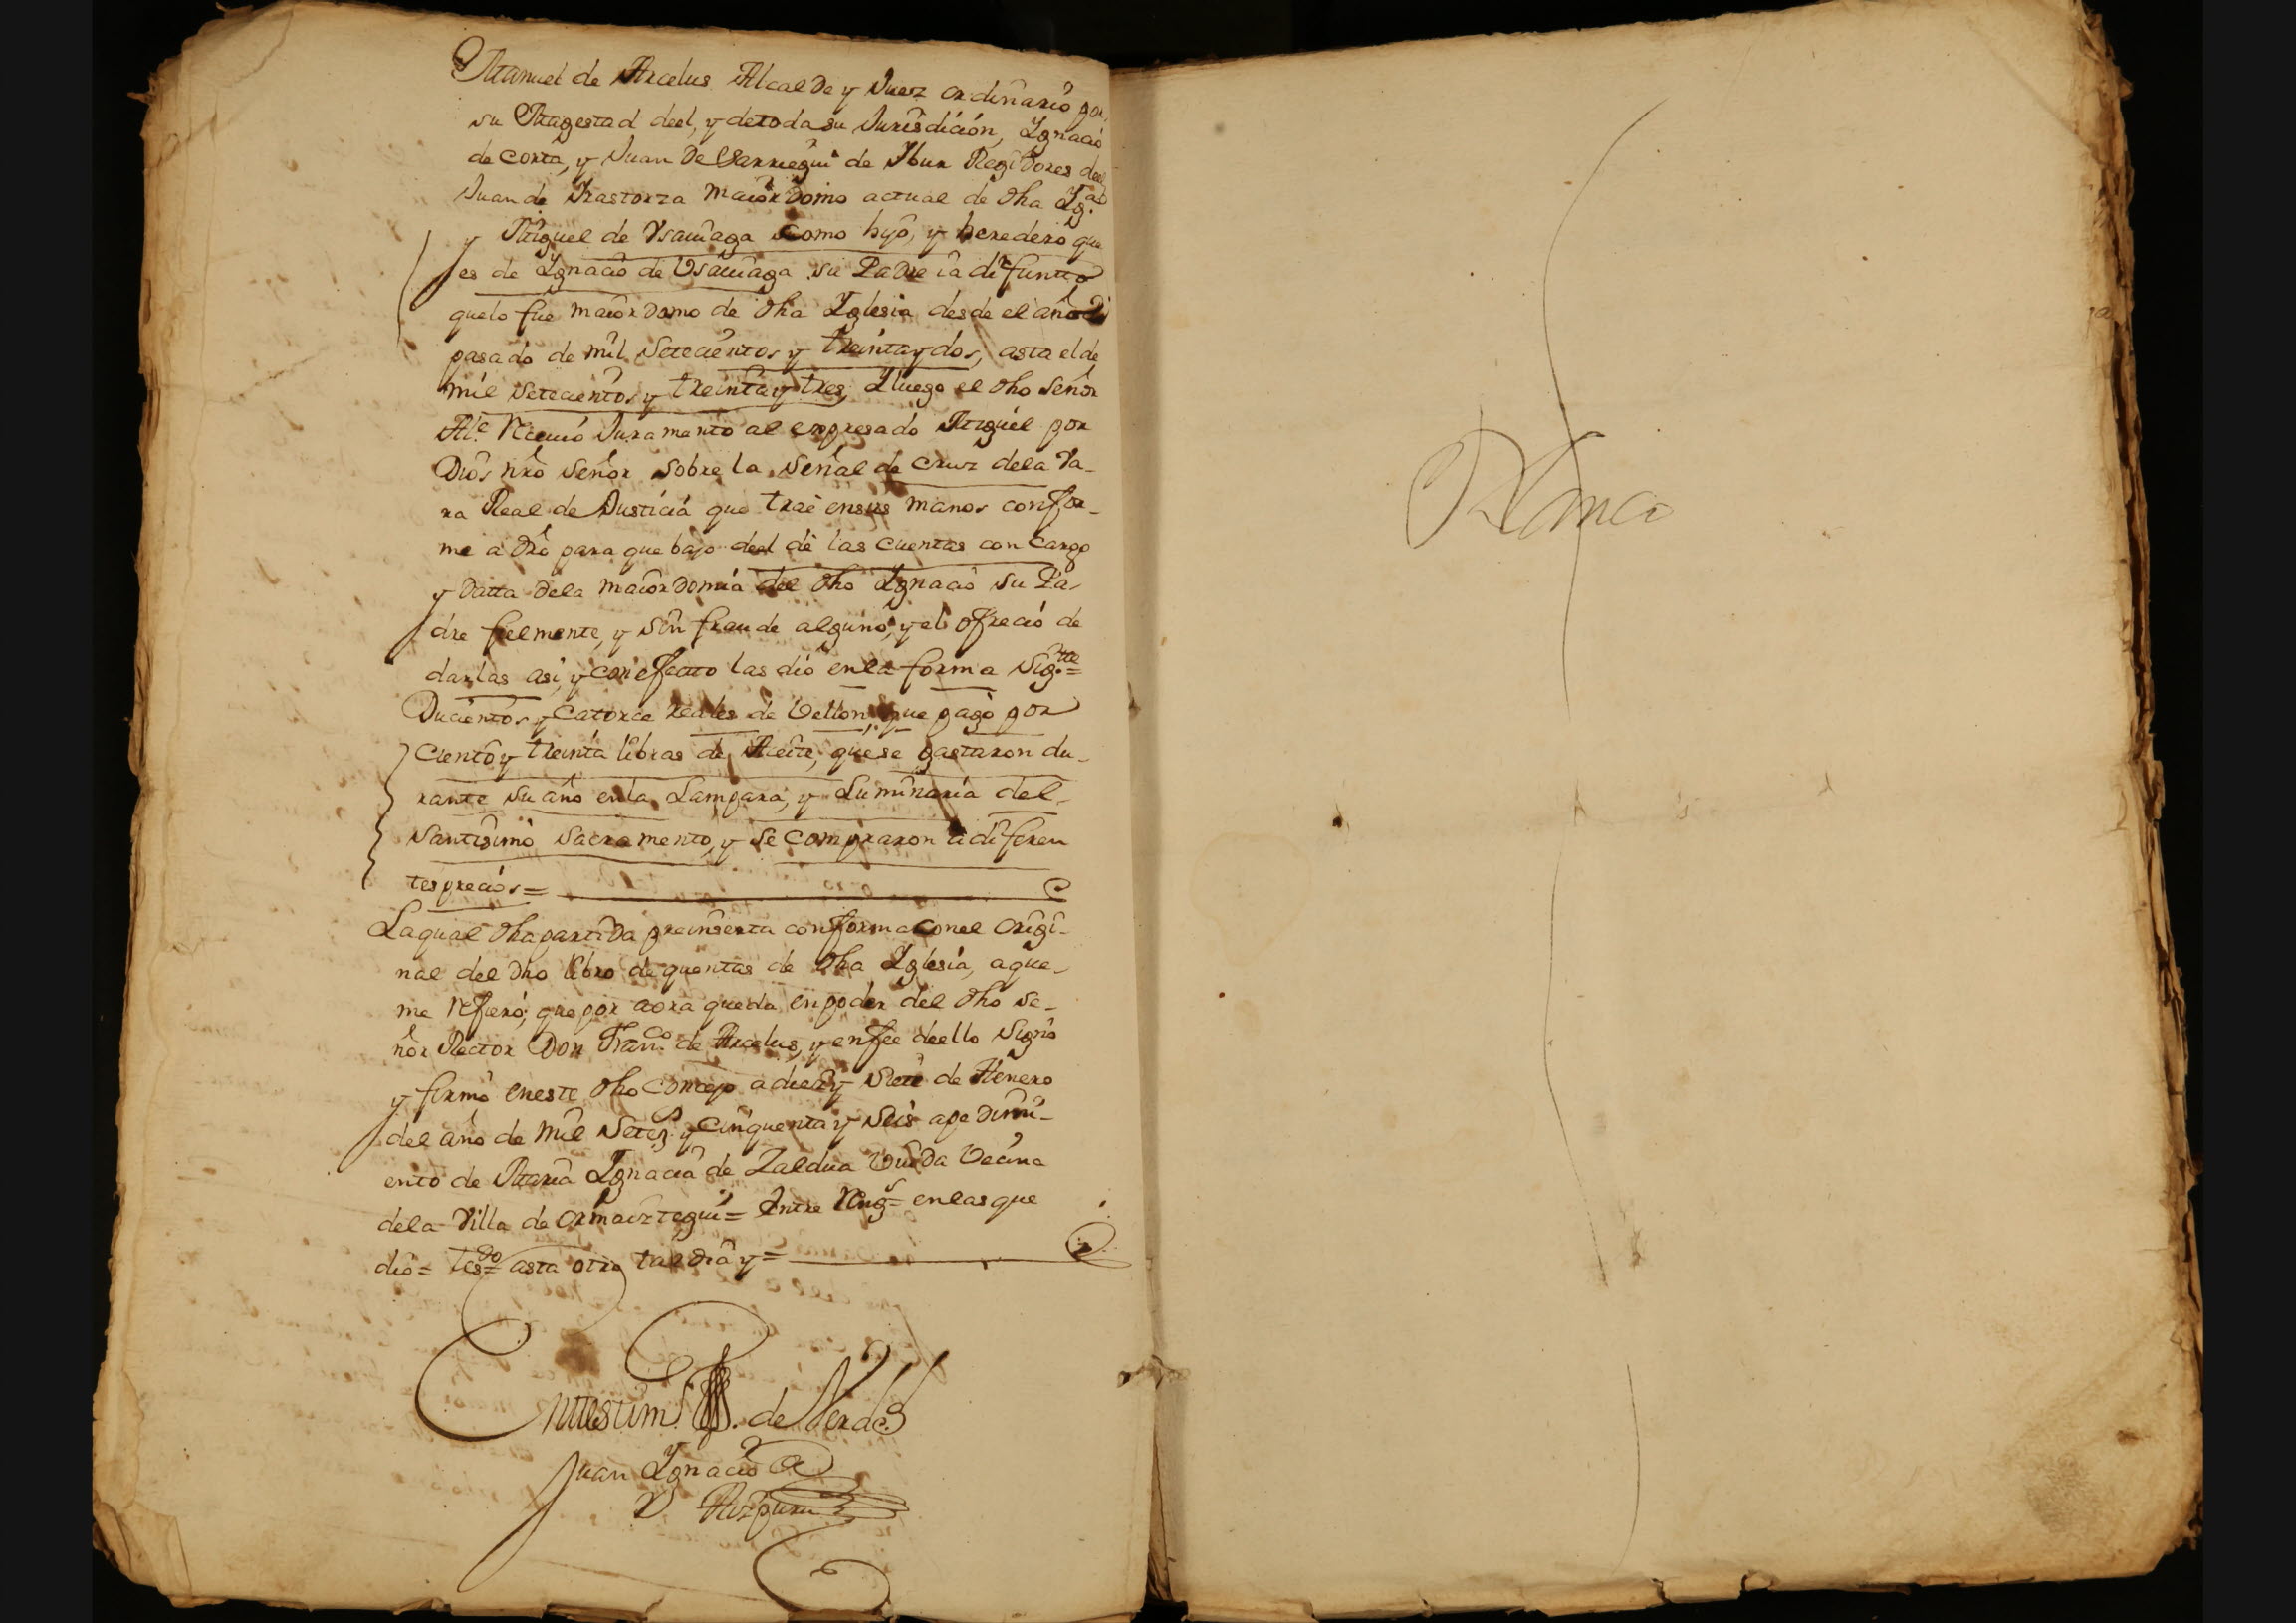 Manuel de Arcelus Alcalde y Juez ordinario por
su Magestad deel, y detoda su Jurisdición, Ygnació
de corta, y Juan de Barriegui de Ybur Regidores deel
Juan de Yrastorza Maiordomo actual de dha Yg.ª
y Miguel de Vsauiaga como hijo, y heredero que
es de Ygnacio de Vsauiaga su Padre ia difunto
quelo fue maiordomo de dha Yglesia desde el año
pasado de mil Setecientos y treintaydos, asta el de
mil setecientos y treintaytres, Yluego el dho señor
Al.e Reciuió Juramento al expresado Miguel por
Dios nrõ señor sobre la señal de cruz dela Va-
ra Real de Justicia que trae ensus manos confor-
me a drõ para que bajo deel de las cuentas con Cargo
y Datta dela maiordomia del dho Ygnacio su Pa-
dre fielmente, y sin fraude alguno, y el ofreció de
darlas asi, y con efecto las dió enla forma sig.tte=
Ducientos y catorce reales de Vellon, que pagó por
ciento y treinta libras de Aceite, quese gastaron du-
rante su año enla Lampara, y Luminaria del
santisimo sacramento, y se compraron a diferen
tes precios=
Laqual dha partida preinserta conforma conel origi-
nal del dho libro de quentas de dha Yglesia, aque
me refiero; que por aora queda enpoder del dho se-
ñor Rector Don Fran.co de Arcelus, y enfee deello signo
y firmo eneste dho Concejo adiez y siete de Henero
del año de mil Setez.s y Cinquenta y Seis apedimi-
ento de Maria Ygnacia de Zaldua Viuda Vecina
dela Villa de Ormaiztegui= Entre Reng.s= enlas que
dió= tes.do= asta otro tal dia y=
Entestim.º de Verdad
Juan Ygnacio
D Aizpuru
Blanco